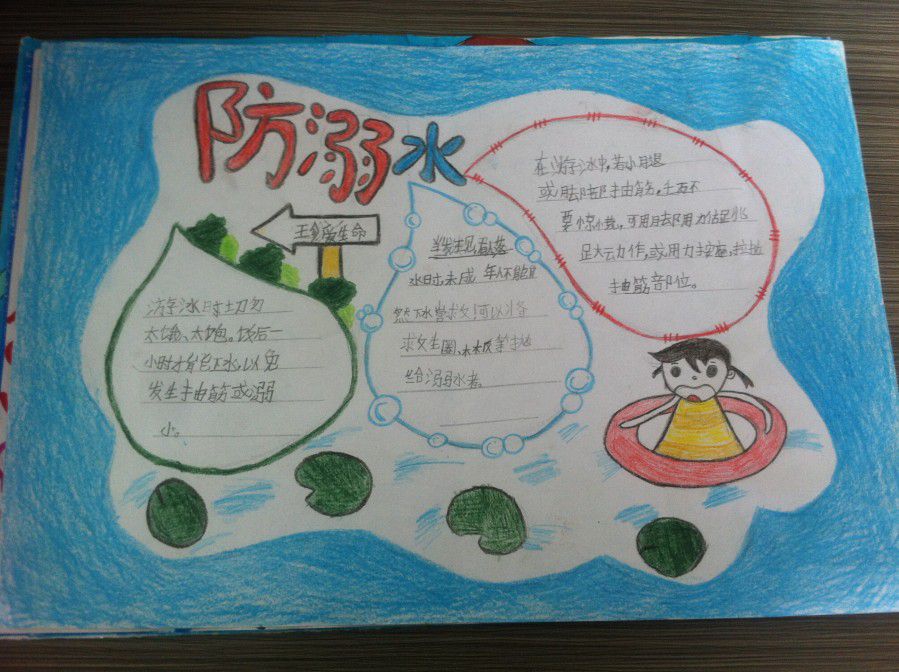 防溺水
珍爱生命
游泳时切勿
太饿、太饱。饭后一
小时才能下水,以免
发生抽筋或溺
水。
当发现有人落
水时,未成年人不能贸
然下水营救,可以将
救生圈、木板等抛
给溺水者。
在游泳中,若小腿
或脚部抽筋,千万不
要惊慌,可用脚用力蹬腿
足大力作,或用力按摩、拉扯
抽筋部位。